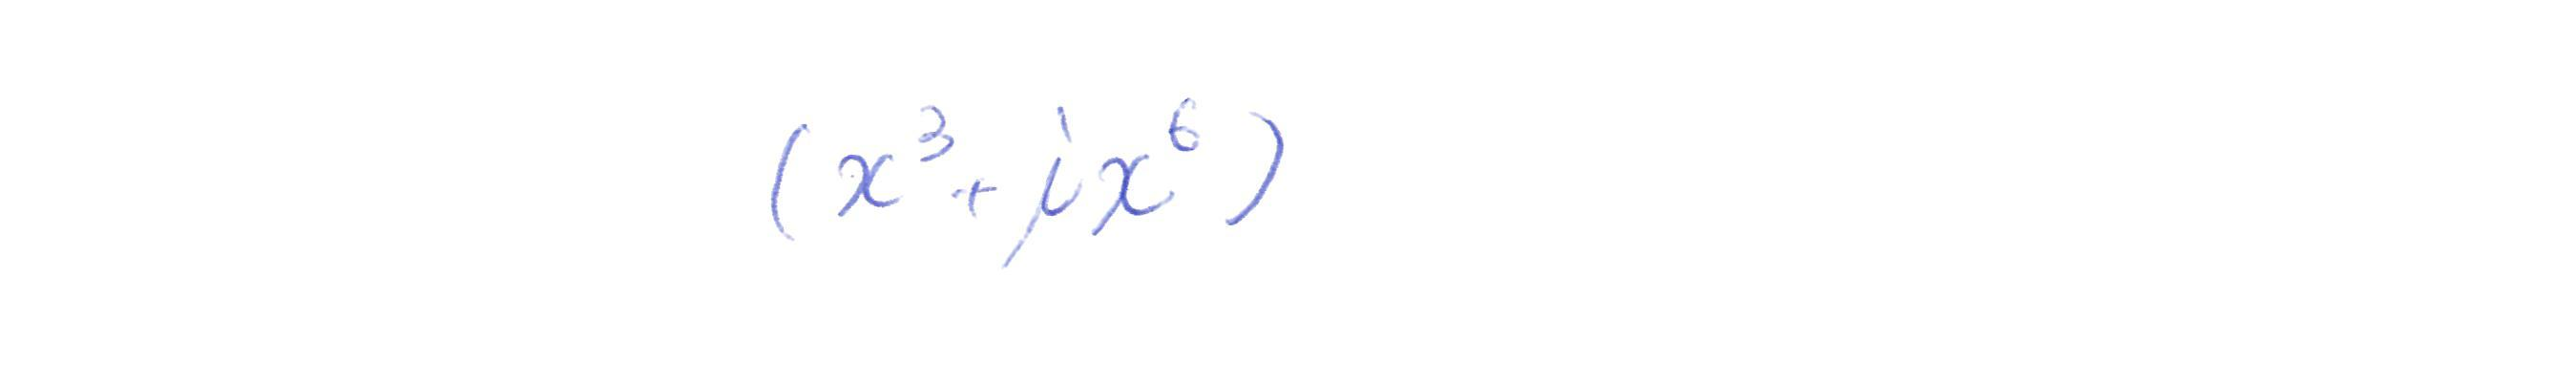 (x³ + μⁱx⁶)